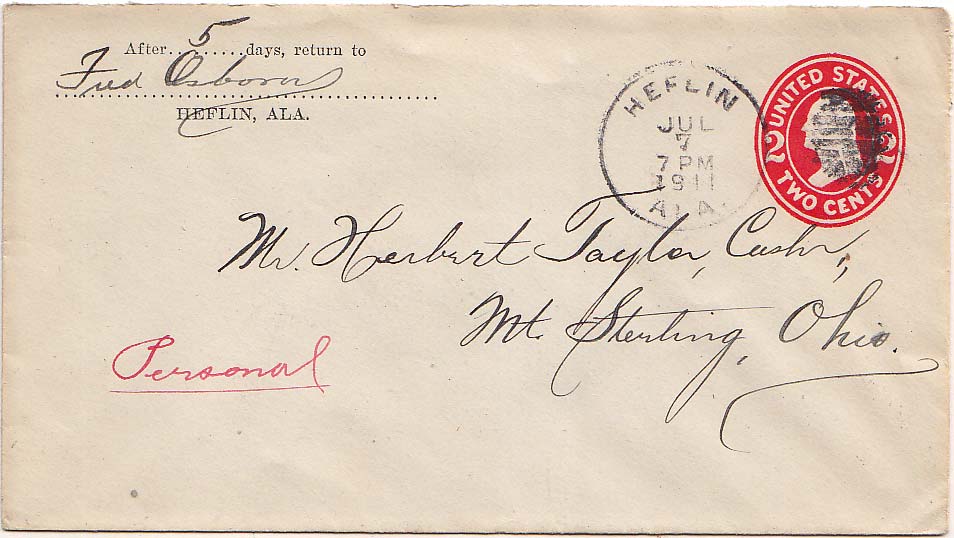 After..5.....days, return to
Fred Osborn
HEFLIN, ALA.
HEFLIN
JUL
7
7 PM
1911
ALA.
UNITED STATES
2 2
TWO CENTS
Mr. Herbert Taylor, Cashr,
Mt. Sterling, Ohio.
Personal